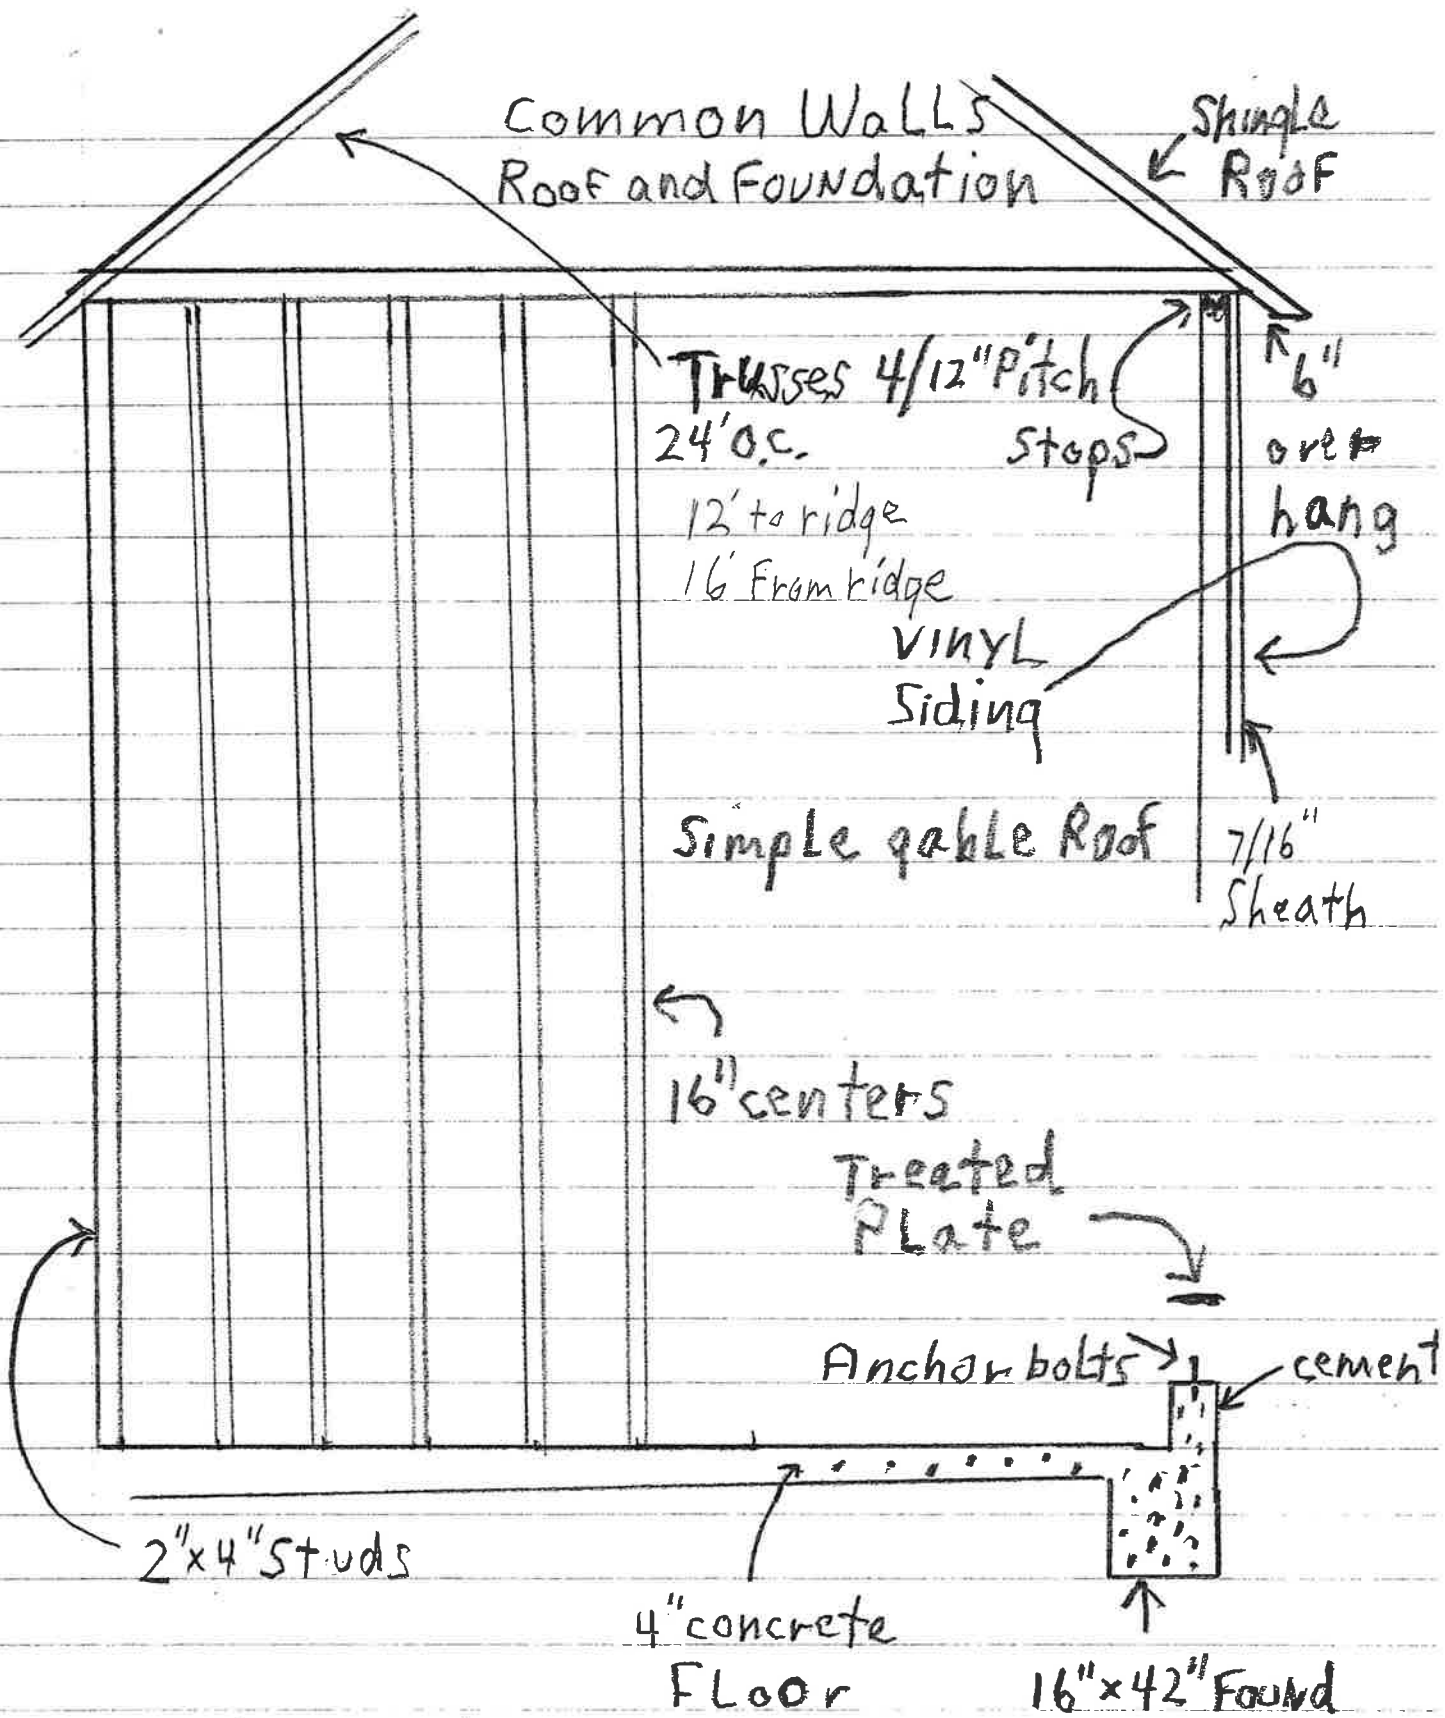 Common Walls
Roof and Foundation
Shingle
Roof
Trusses 4/12" Pitch
24' O.C.
12' to ridge
16' From ridge
Stops
6"
over
hang
Vinyl
Siding
Simple gable Roof
7/16"
Sheath
16" centers
Treated
Plate
Anchor bolts
cement
2"x4" Studs
4" concrete
Floor
16"x42" Found